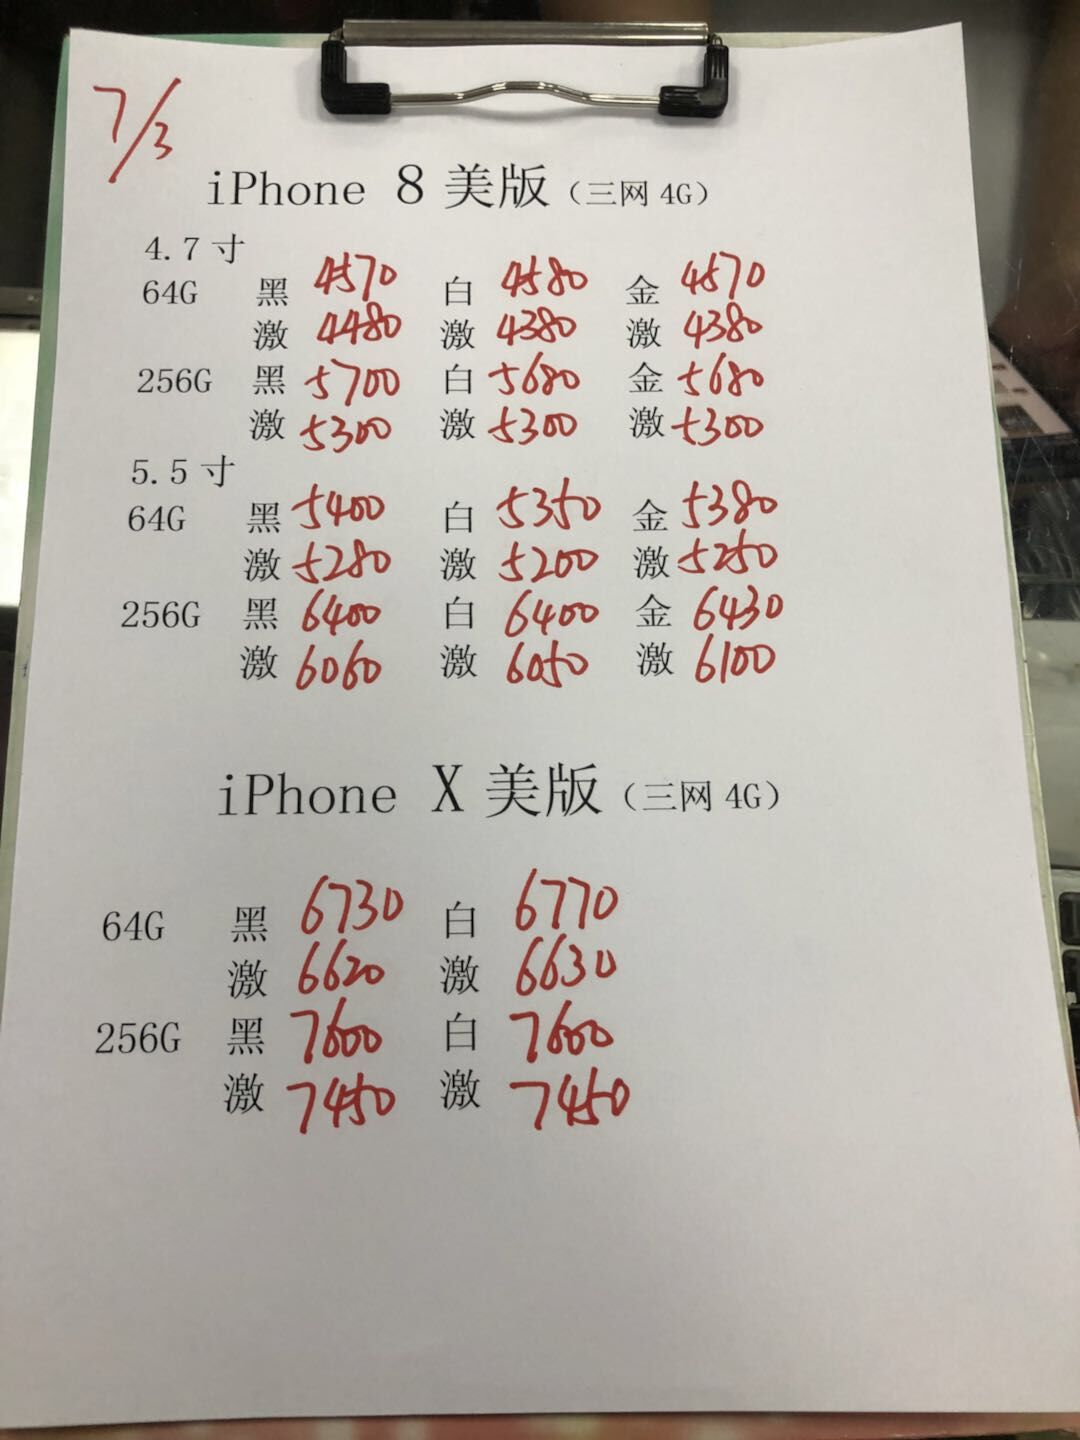 7/3
iPhone 8 美版（三网 4G）
4.7 寸
64G 黑 4570 白 4580 金 4570
激 4480 激 4380 激 4380
256G 黑 5700 白 5680 金 5680
激 5300 激 5300 激 5300
5.5 寸
64G 黑 5400 白 5350 金 5380
激 5280 激 5200 激 5250
256G 黑 6400 白 6400 金 6430
激 6060 激 6050 激 6100
iPhone X 美版（三网 4G）
64G 黑 6730 白 6770
激 6620 激 6630
256G 黑 7600 白 7600
激 7450 激 7450